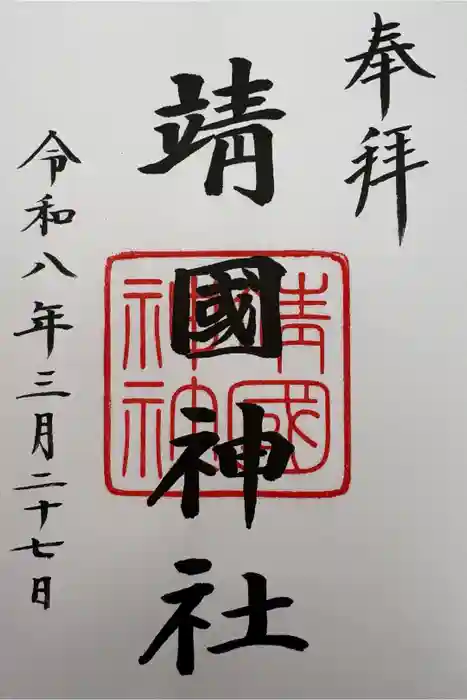 奉拝
靖國神社
令和八年三月二十七日
靖國
神社